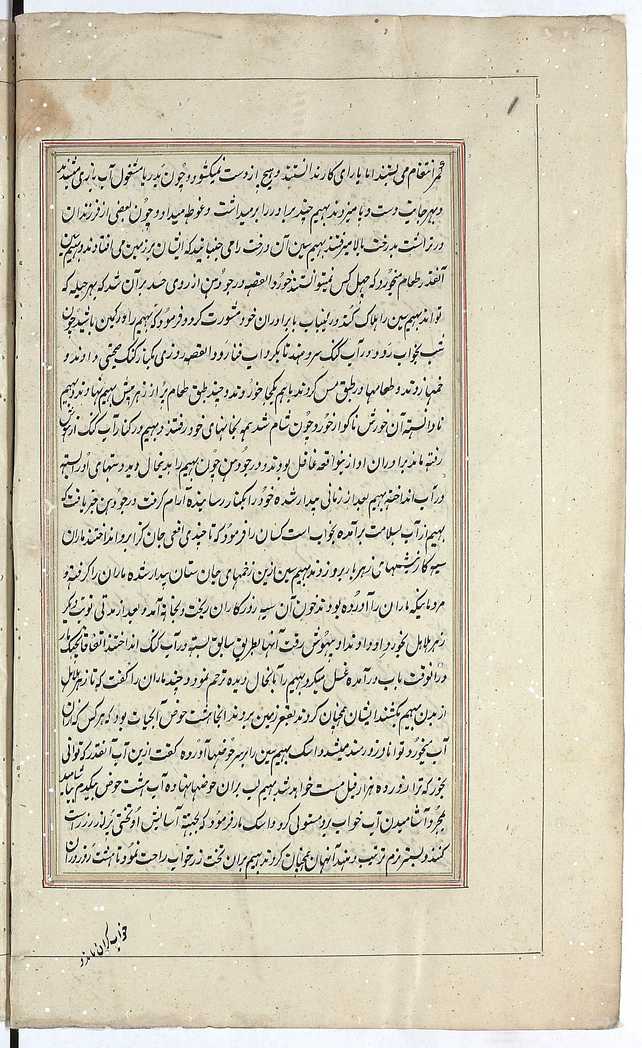 کمر انتقام می بستند اما یارای کار ندانستند و هیچ از دست نمیکشود و چون بدریا مشغول آب بازی میشدند
و بهر جا بدست و پا میزدند بهیم چند برادر را برمیداشت و غوطه میداد و چون بعضی از فرزندان
درتراشت بدرخت بالا میرفتند بهیم سین آن درخت را می جنبانید که ایشان بر زمین می افتادند و بهیم سین
آنقدر طعام میخورد که چهل کس نمیتوانستند خورد القصه درجودهن از روی حسد بر آن شد که بهر حیله که
تواند بهیم سین را هلاک کند درینباب با برادران خود مشورت کرد و فرمود که بهیم را در کمین باشید چون
شب بخواب رود در آب گنگ سر دهند تا بگرداب فنا رود القصه روزی بکنار گنگ صحبتی دادند و
خیمها زدند و طعامها در طبق مس کردند باهم یکجا خوردند و چند طبق طعام پر از زهر پیش بهیم نهادند و بهیم
نادانسته آن خورش ناگوار خورد و چون شام شد همه بخانهای خود رفتند و بهیم در کنار آب گنگ از هوش
رفته ماند برادران او ازینواقعه غافل بودند درجودهن چون بهیم را بدینحال دید دستهای او را بسته
در آب انداخت بهیم بعد از زمانی بیدار شده خود را بکنار رسانیده آرام گرفت درجودهن خبر یافت که
بهیم از آب بسلامت برآمده بخواب است کسان را فرمود که تا چندی افعی جان گزا برو انداختند ماران
سیه کار نیشهای زهر بار برو زدند بهیم سین ازین زخمهای جان ستان بیدار شده ماران را گرفته و
مردمانیکه ماران را آورده بودند خون آن سیه روزکاران ریخت و بخانه آمد و بعد از مدتی نوبت دیگر
زهر هلاهل بخورد او دادند او بیهوش رفت آنها بطریق سابق بسته در آب گنگ انداختند اتفاقا اسک مار
در آنوقت باب درآمده غسل میکرد بهیم را بانحال دیده ترحم نمود و چند ماران را گفت که تا زهر هلاهل
از بدن بهیم بکشند ایشان همچنان کردند بقعر زمین بردند انجا هشت حوض آبحیات بود که هر کس که ازان
آب بخورد توانا و زورمند میشد و اسک بهیم سین را بر سر حوضها آورده گفت ازین آب آنقدر که توانی
بخور که ترا زور ده هزار فیل مست خواهد شد بهیم لب بران حوضها نهاده آب هشت حوض بیکدم بیاشامید
بمجرد آشامیدن آب خواب برو مستولی کرد و اسک مار فرمود که بجهت آسایش او تختی پر از زر راست
کنند و بستر نرم ترتیب دهند آنهان همچنان کردند بهیم بران تخت زر خواب راحت نمود تا هشت روز دران
خواب گران ماند و